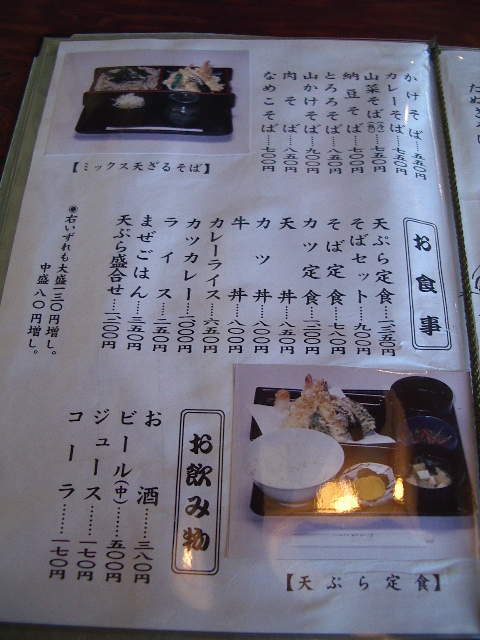 かけそば……五五〇円
カレーそば……七五〇円
山菜そば……七五〇円
納豆そば……七〇〇円
とろろそば……八五〇円
山かけそば……九〇〇円
肉そば……八五〇円
なめこそば……七〇〇円
【ミックス天ざるそば】
お食事
天ぷら定食……一、三五〇円
そばセット……九〇〇円
そば定食……七八〇円
カツ定食……一、二〇〇円
天丼……八五〇円
カツ丼……八〇〇円
牛丼……八〇〇円
カレーライス……六五〇円
カツカレー……一、〇〇〇円
ライス……二五〇円
まぜごはん……三五〇円
天ぷら盛合せ……一、二〇〇円
◉右いずれも大盛一三〇円増し。
中盛八〇円増し。
お飲み物
お酒……三八〇円
ビール(中)……五〇〇円
ジュース……一七〇円
コーラ……一七〇円
【天ぷら定食】